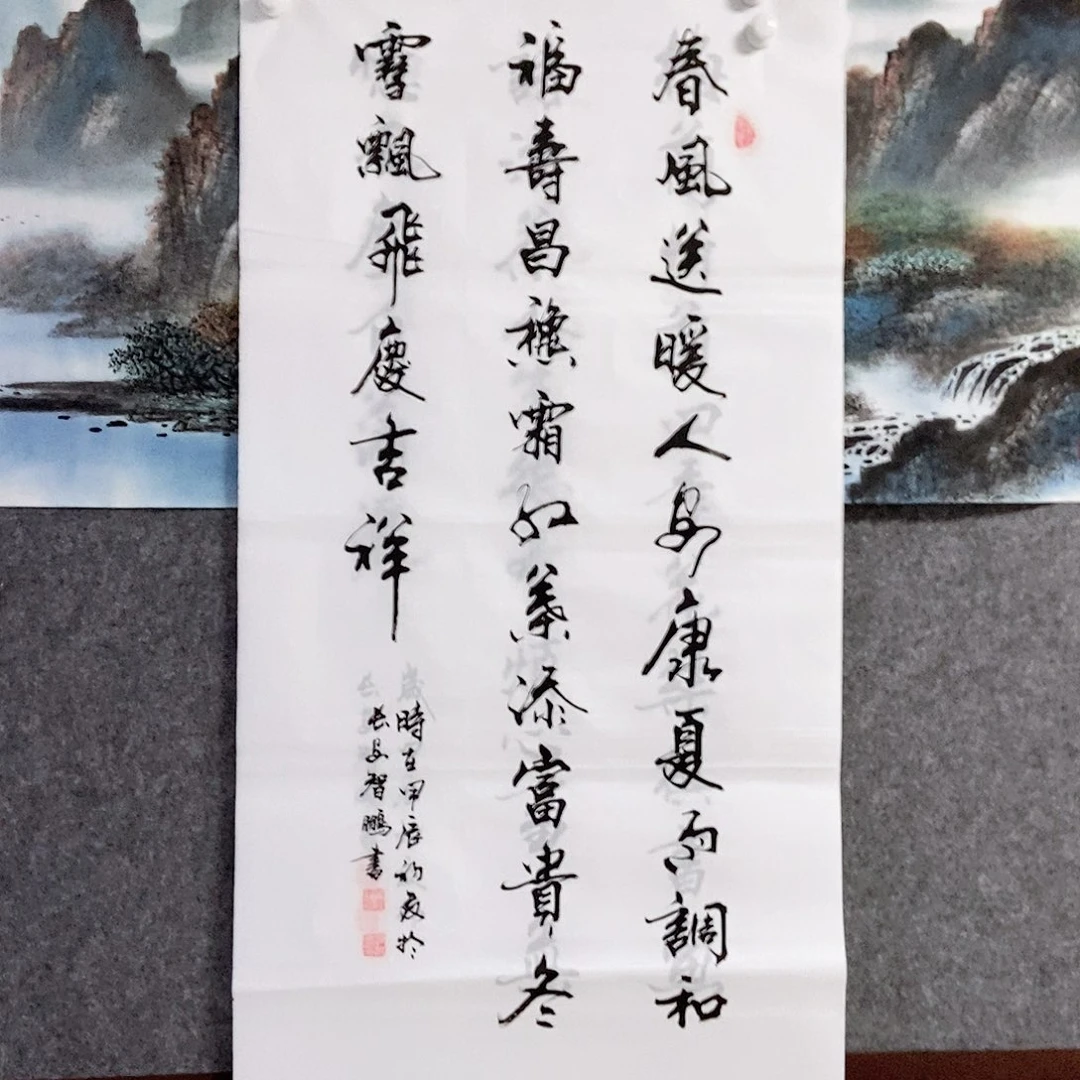 春風送暖人安康夏雨調和
福壽昌龝霜紅葉添富貴冬
雪飄飛慶吉祥
時在甲辰初夏於
長安智鵬書